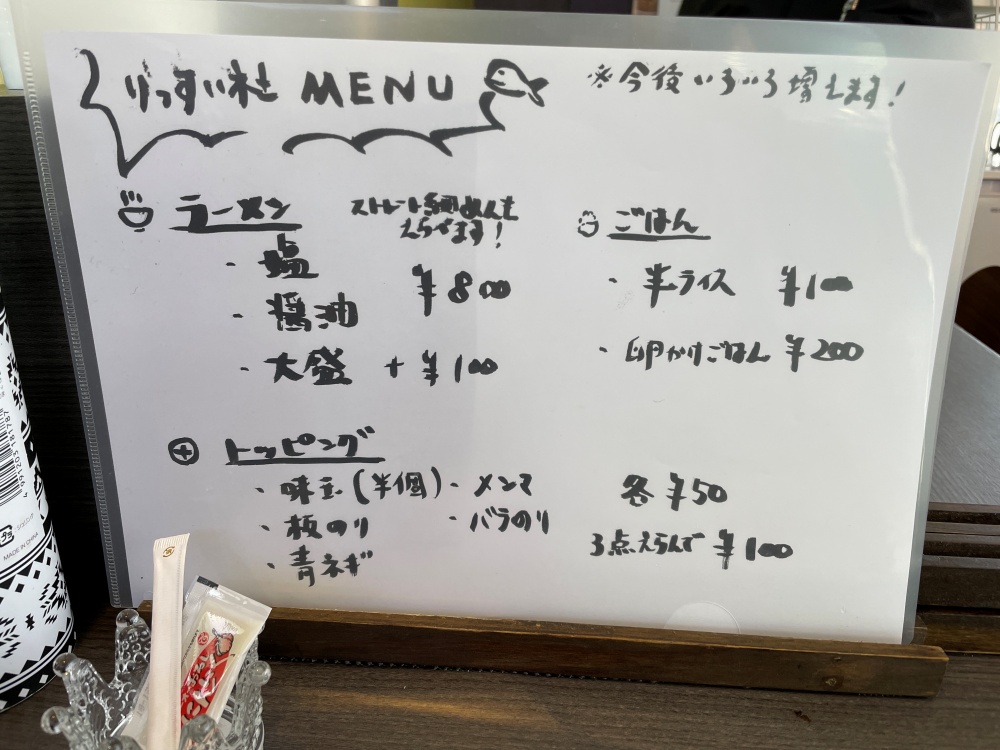 りっすい MENU
※今後いろいろ増えます!
ラーメン
ストレート細めんも
えらべます!
・塩
・醤油
¥800
・大盛 +¥100
ごはん
・半ライス ¥100
・卵かけごはん ¥200
トッピング
・味玉(半個)・メンマ
・板のり ・バラのり
・青ネギ
各¥50
3点えらんで ¥100
4991203181787
MADE IN CHINA